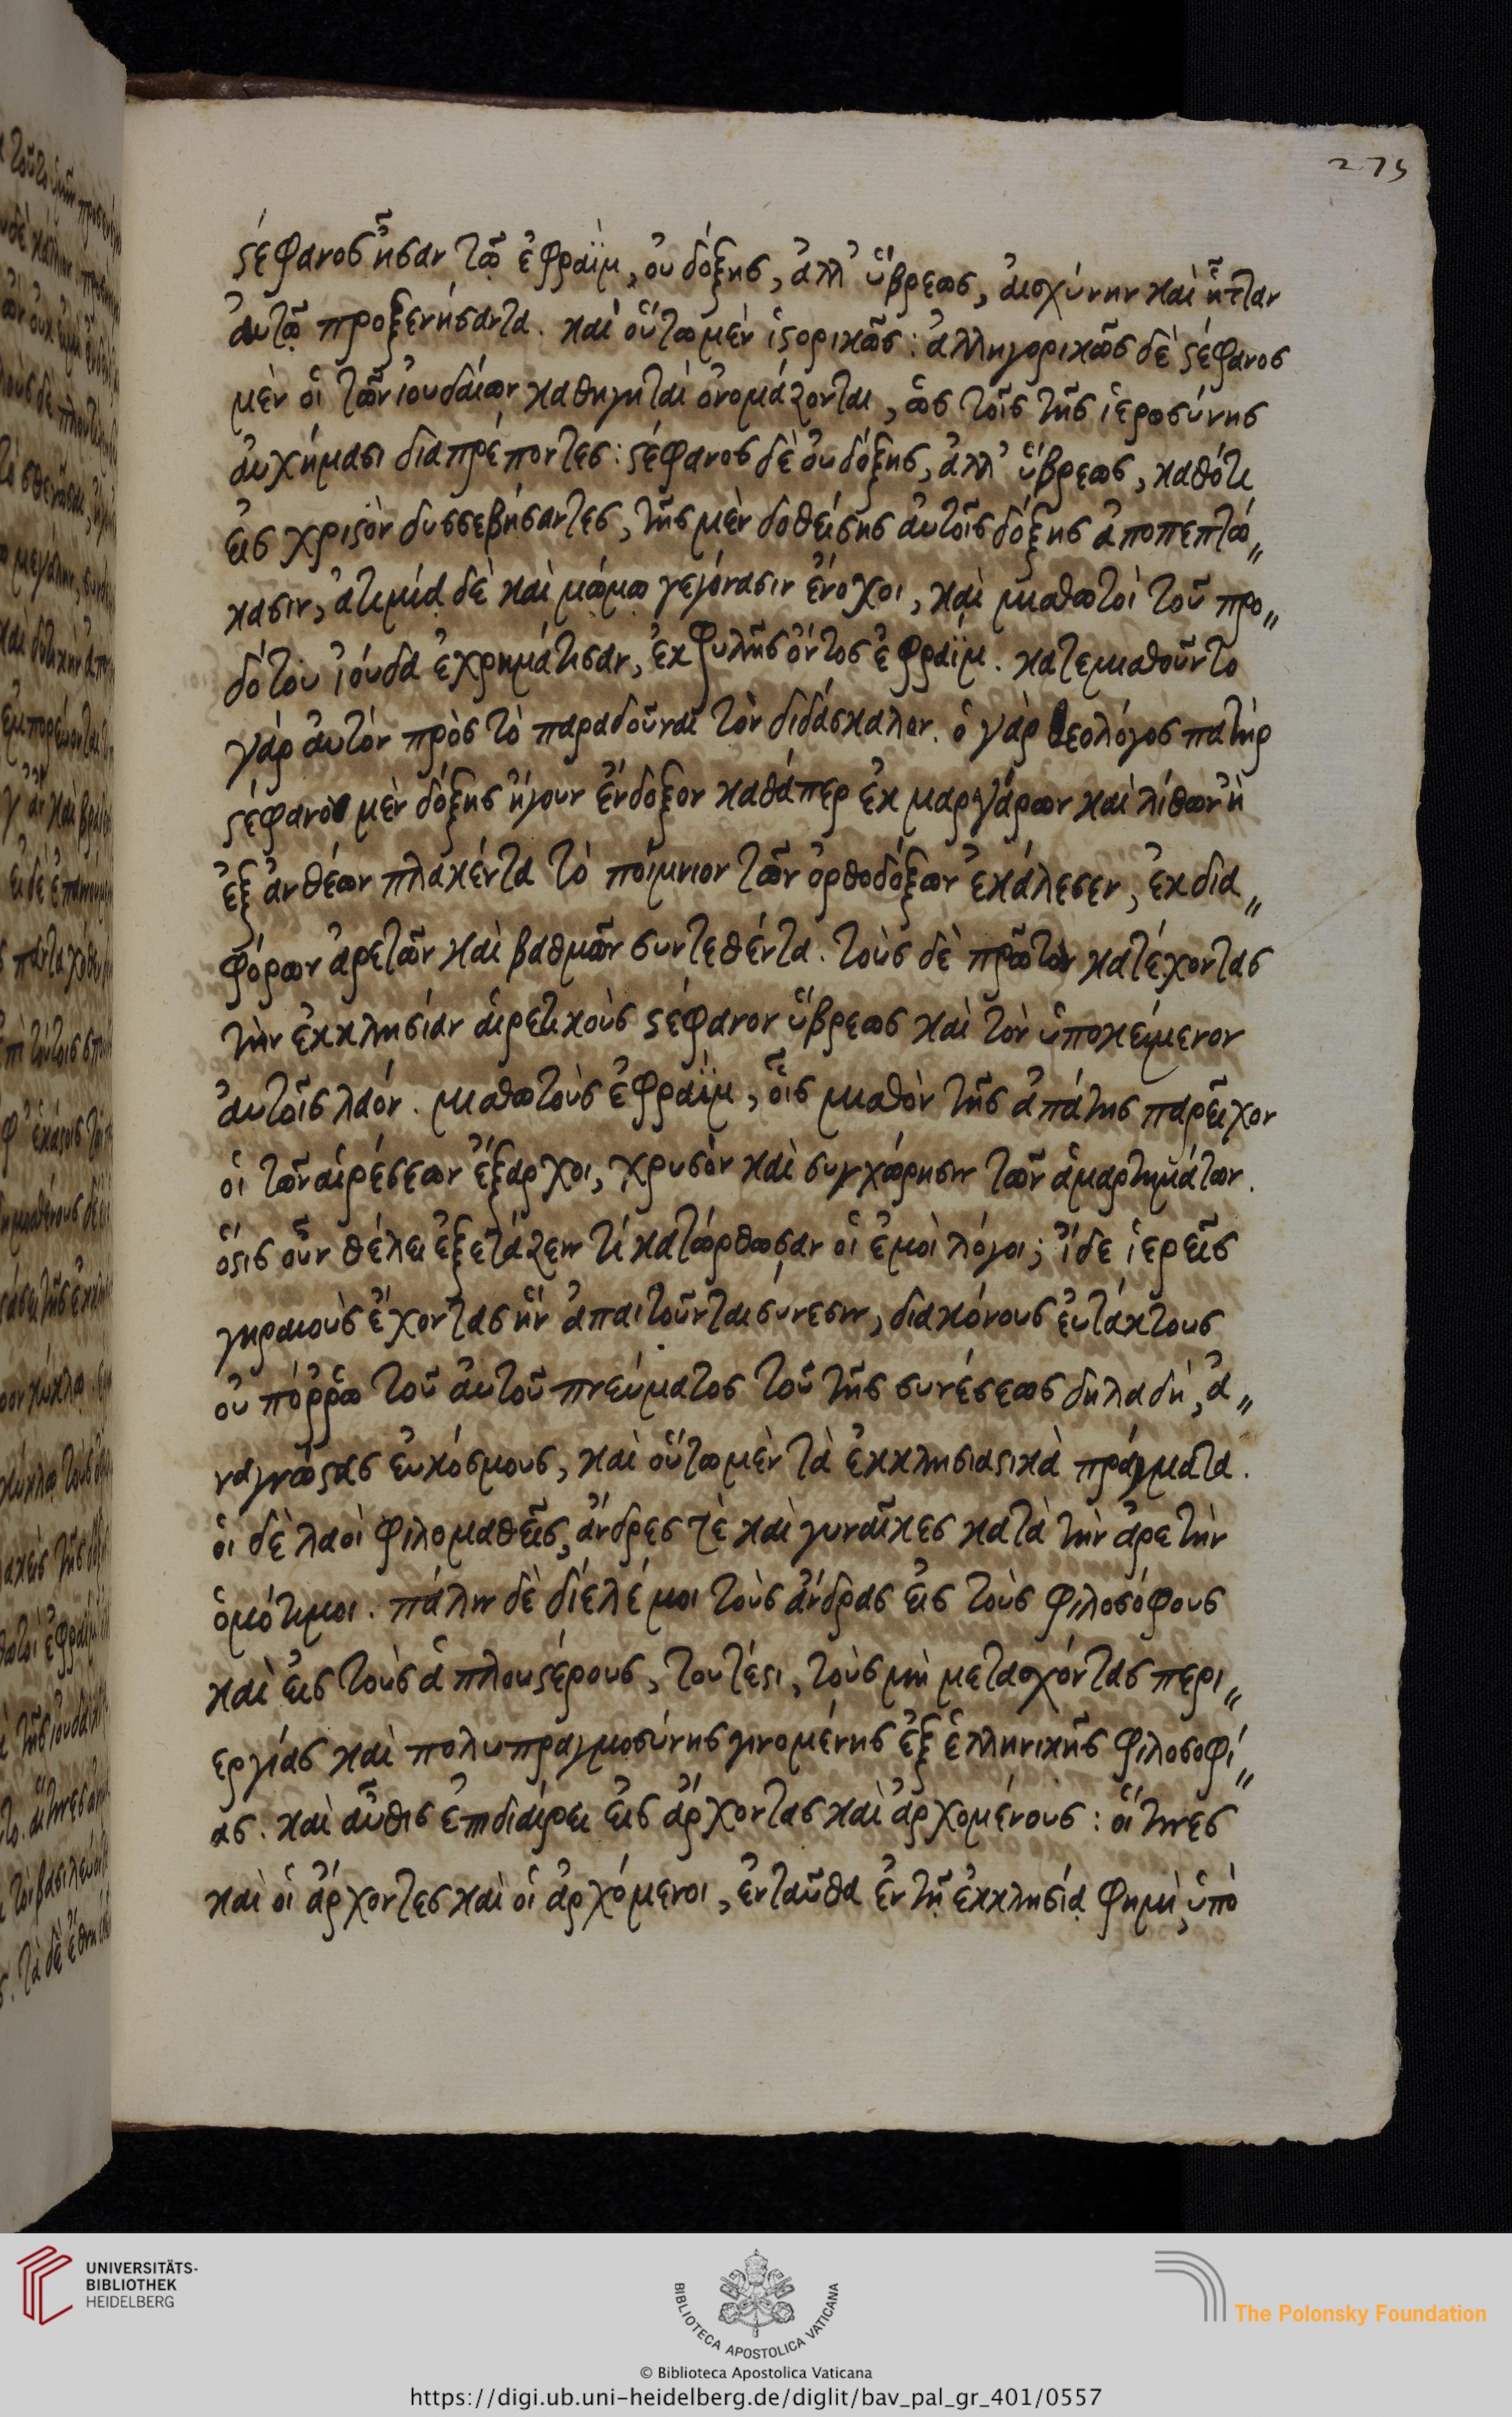 275
στέφανος ἦσαν τῶ ἐφραϊμ, οὐ δόξης, ἀλλ᾽ ὕβρεως, αἰσχύνην καὶ ἧτταν
αὐτῶ προξενήσαντα. καὶ οὕτω μὲν ἱστορικῶς: ἀλληγορικῶς δὲ στέφανος
μὲν οἱ τῶν ἰουδαίων καθηγηταὶ ὀνομάζονται, ὡς τοῖς τῆς ἱερωσύνης
αὐχήμασι διαπρέποντες: στέφανος δὲ οὐ δόξης, ἀλλ᾽ ὕβρεως, καθότι
εἰς χριστὸν δυσσεβήσαντες, τῆς μὲν δοθείσης αὐτοῖς δόξης ἀποπεπτώ〃
κασιν, ἀτιμία δὲ καὶ μώμω γεγόνασιν ἔνοχοι, καὶ μισθωτοὶ τοῦ προ〃
δότου ἰούδα ἐχρημάτισαν, ἐκ φυλῆς ὄντος ἐφραϊμ. κατεμισθοῦντο
γὰρ αὐτὸν πρὸς τὸ παραδοῦναι τὸν διδάσκαλον. ὁ γὰρ θεολόγος πατὴρ
στέφανον μὲν δόξης ἤγουν ἔνδοξον καθάπερ ἐκ μαργάρων καὶ λίθων ἢ
ἐξ ἀνθέων πλακέντα τὸ ποίμνιον τῶν ὀρθοδόξων ἐκάλεσεν, ἐκ δια〃
φόρων ἀρετῶν καὶ βαθμῶν συντεθέντα. τοὺς δὲ πρῶτον κατέχοντας
τὴν ἐκκλησίαν αἱρετικοὺς στέφανον ὕβρεως καὶ τὸν ὑποκείμενον
αὐτοῖς λαόν. μισθωτοὺς ἐφραϊμ, οἷς μισθὸν τῆς ἀπάτης παρεῖχον
οἱ τῶν αἱρέσεων ἔξαρχοι, χρυσὸν καὶ συγχώρησιν τῶν ἁμαρτημάτων.
ὅστις οὖν θέλει ἐξετάζειν τί κατώρθωσαν οἱ ἐμοὶ λόγοι; ἴδε ἱερεῖς
γηραιοὺς ἔχοντας ἣν ἀπαιτοῦνται σύνεσιν, διακόνους εὐτάκτους
οὐ πόῤῥω τοῦ αὐτοῦ πνεύματος τοῦ τῆς συνέσεως δηλαδή, ἀ〃
ναγνώστας εὐκόσμους, καὶ οὕτω μὲν τὰ ἐκκλησιαστικὰ πράγματα.
οἱ δὲ λαοὶ φιλομαθεῖς, ἄνδρες τὲ καὶ γυναῖκες κατὰ τὴν ἀρετὴν
ὁμότιμοι. πάλιν δὲ δίελέ μοι τοὺς ἄνδρας εἰς τοὺς φιλοσόφους
καὶ εἰς τοὺς ἁπλουστέρους, τουτέστι, τοὺς μὴ μετασχόντας περι〃
εργίας καὶ πολυπραγμοσύνης γινομένης ἐξ ἑλληνικῆς φιλοσοφί〃
ας. καὶ αὖθις ἐπιδιαίρει εἰς ἄρχοντας καὶ ἀρχομένους: οἵ τινες
καὶ οἱ ἄρχοντες καὶ οἱ ἀρχόμενοι, ἐνταῦθα ἐν τῆ ἐκκλησία φημὶ, ὑπὸ
UNIVERSITÄTS-
BIBLIOTHEK
HEIDELBERG
BIBLIOTECA APOSTOLICA VATICANA
The Polonsky Foundation
© Biblioteca Apostolica Vaticana
https://digi.ub.uni-heidelberg.de/diglit/bav_pal_gr_401/0557